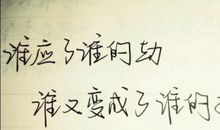 谁应了谁的劫
谁又变成了谁的